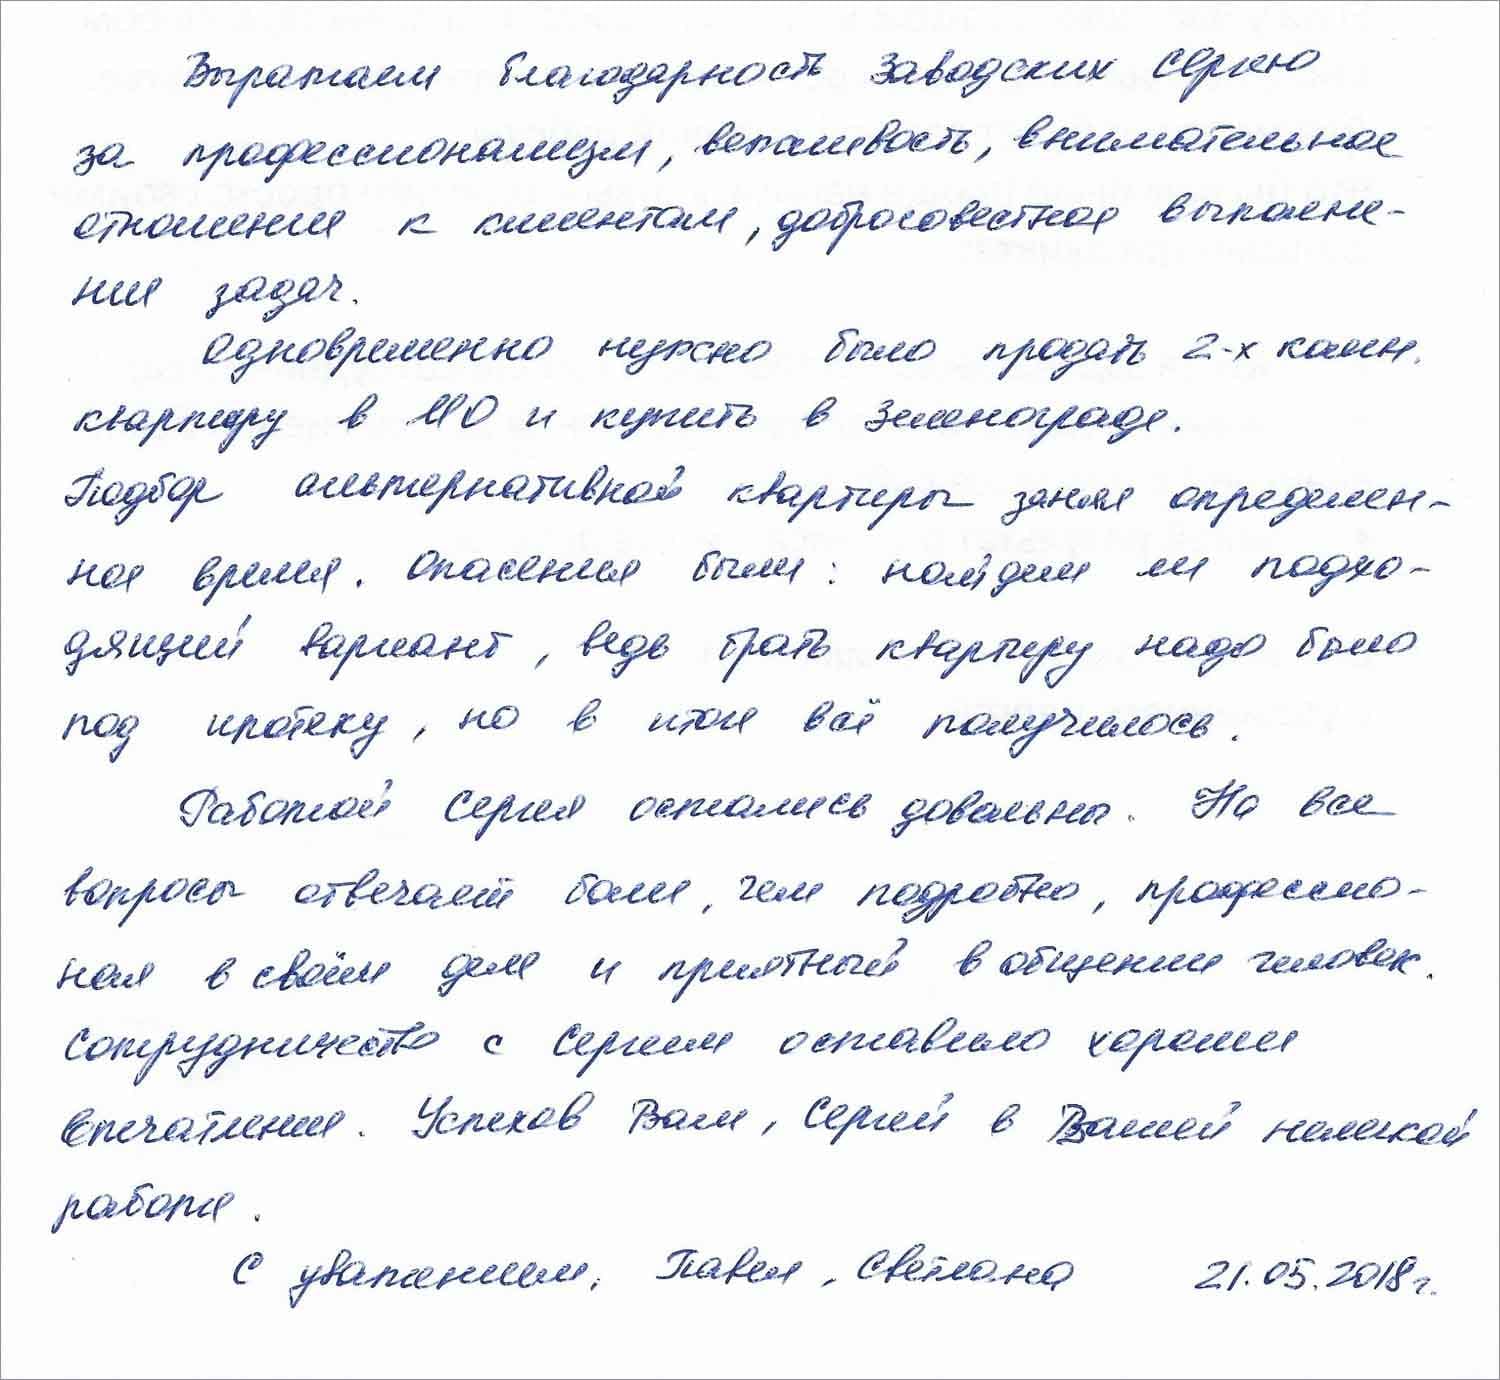 Выражаем благодарность Заводских Сергею
за профессионализм, вежливость, внимательное
отношение к клиентам, добросовестное выполне-
ние задач.
Одновременно нужно было продать 2-х комн.
квартиру в МО и купить в Зеленограде.
Подбор альтернативной квартиры занял определен-
ное время. Опасения были: найдем ли подхо-
дящий вариант, ведь брать квартиру надо было
под ипотеку, но в итоге всё получилось.
Работой Сергея остались довольны. На все
вопросы отвечает более, чем подробно, профессио-
нал в своём деле и приятный в общении человек.
Сотрудничество с Сергеем оставило хорошее
впечатление. Успехов Вам, Сергей в Вашей нелегкой
работе.
С уважением, Павел, Светлана 21.05.2018г.